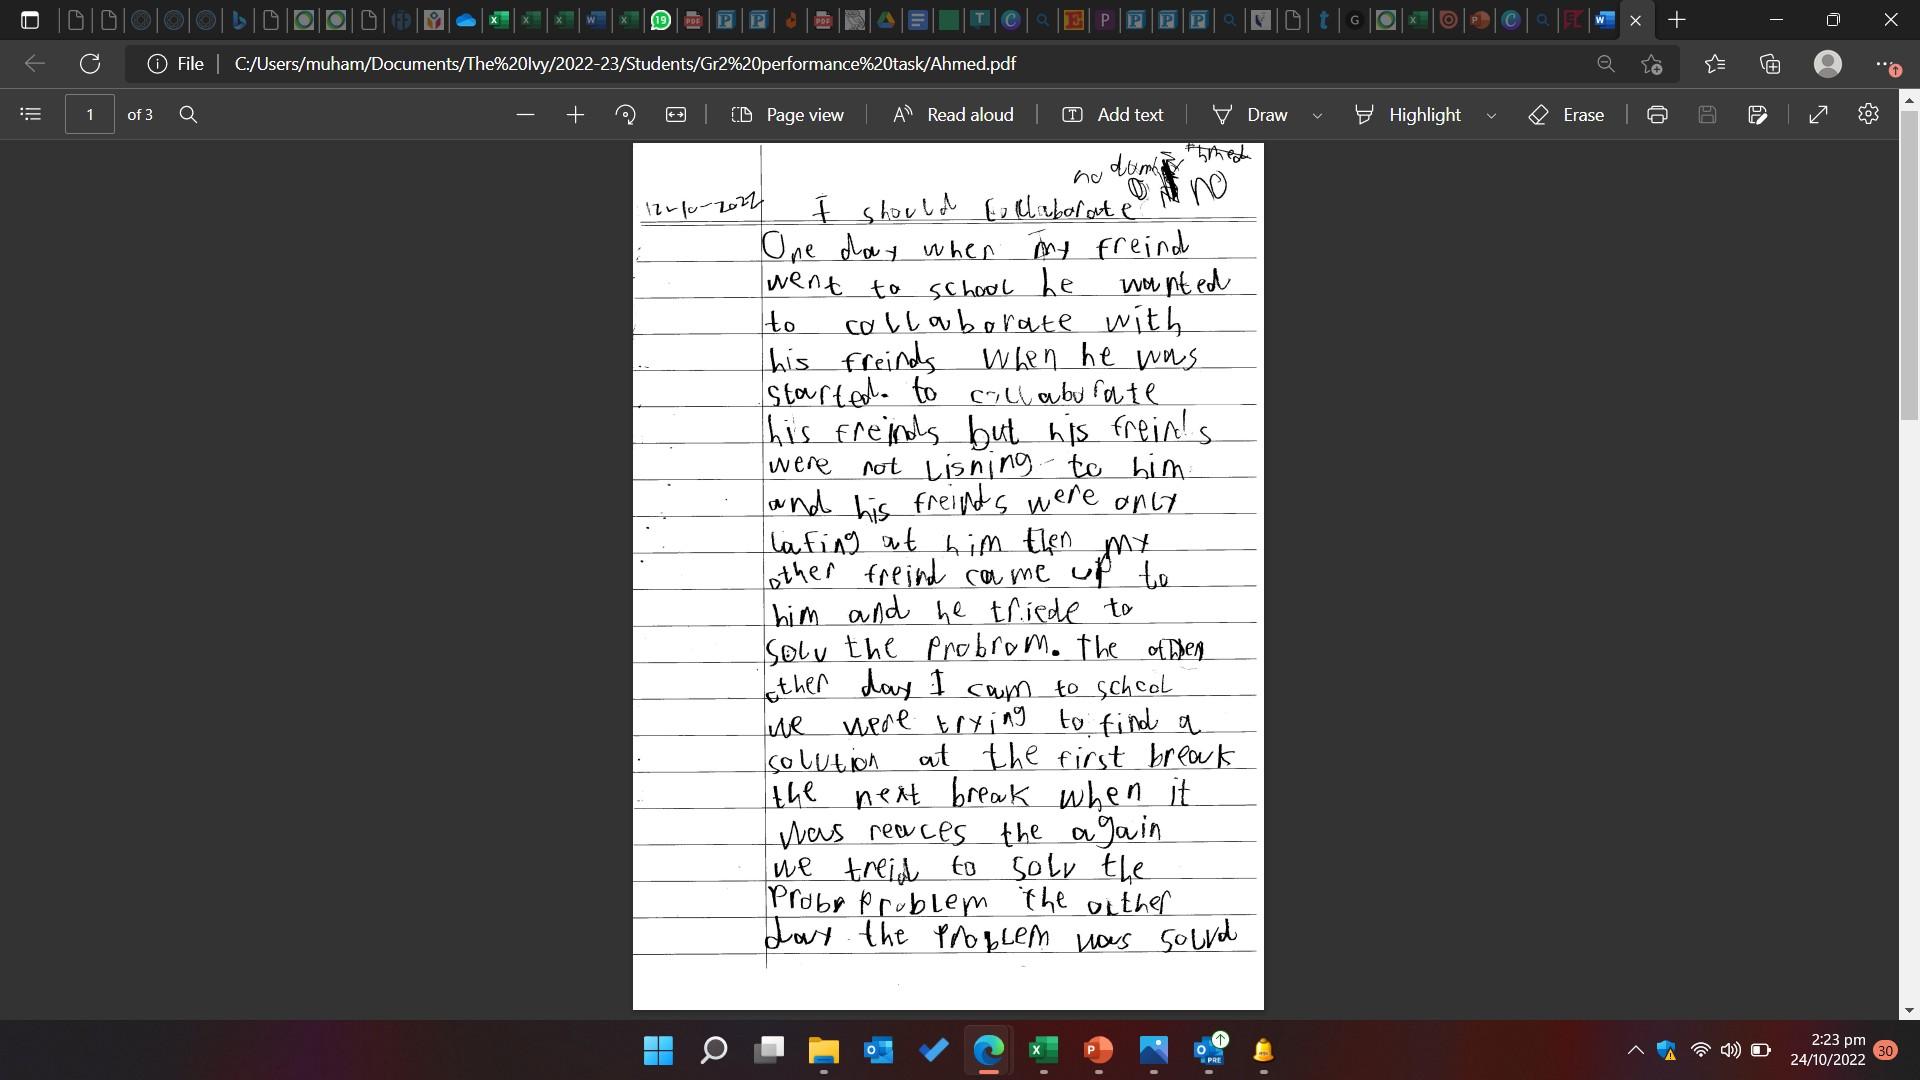 19
File
C:/Users/muham/Documents/The%20Ivy/2022-23/Students/Gr2%20performance%20task/Ahmed.pdf
1 of 3
Page view
Read aloud
Add text
Draw
Highlight
Erase
Ahmed
no no
12-10-2022 I should collaborate
One day when my freind
went to school he wanted
to collaborate with
his freinds when he was
started. to collaborate
his freinds but his freinds
were not Lisning to him
and his freinds were only
lafing at him then my
other freind came up to
him and he triede to
solv the probrom. the
other day I cam to school
we were trying to find a
solution at the first break
the next break when it
was reaces the again
we treid to solv the
Probr Problem the outher
day the problem was solvd
2:23 pm
24/10/2022
30